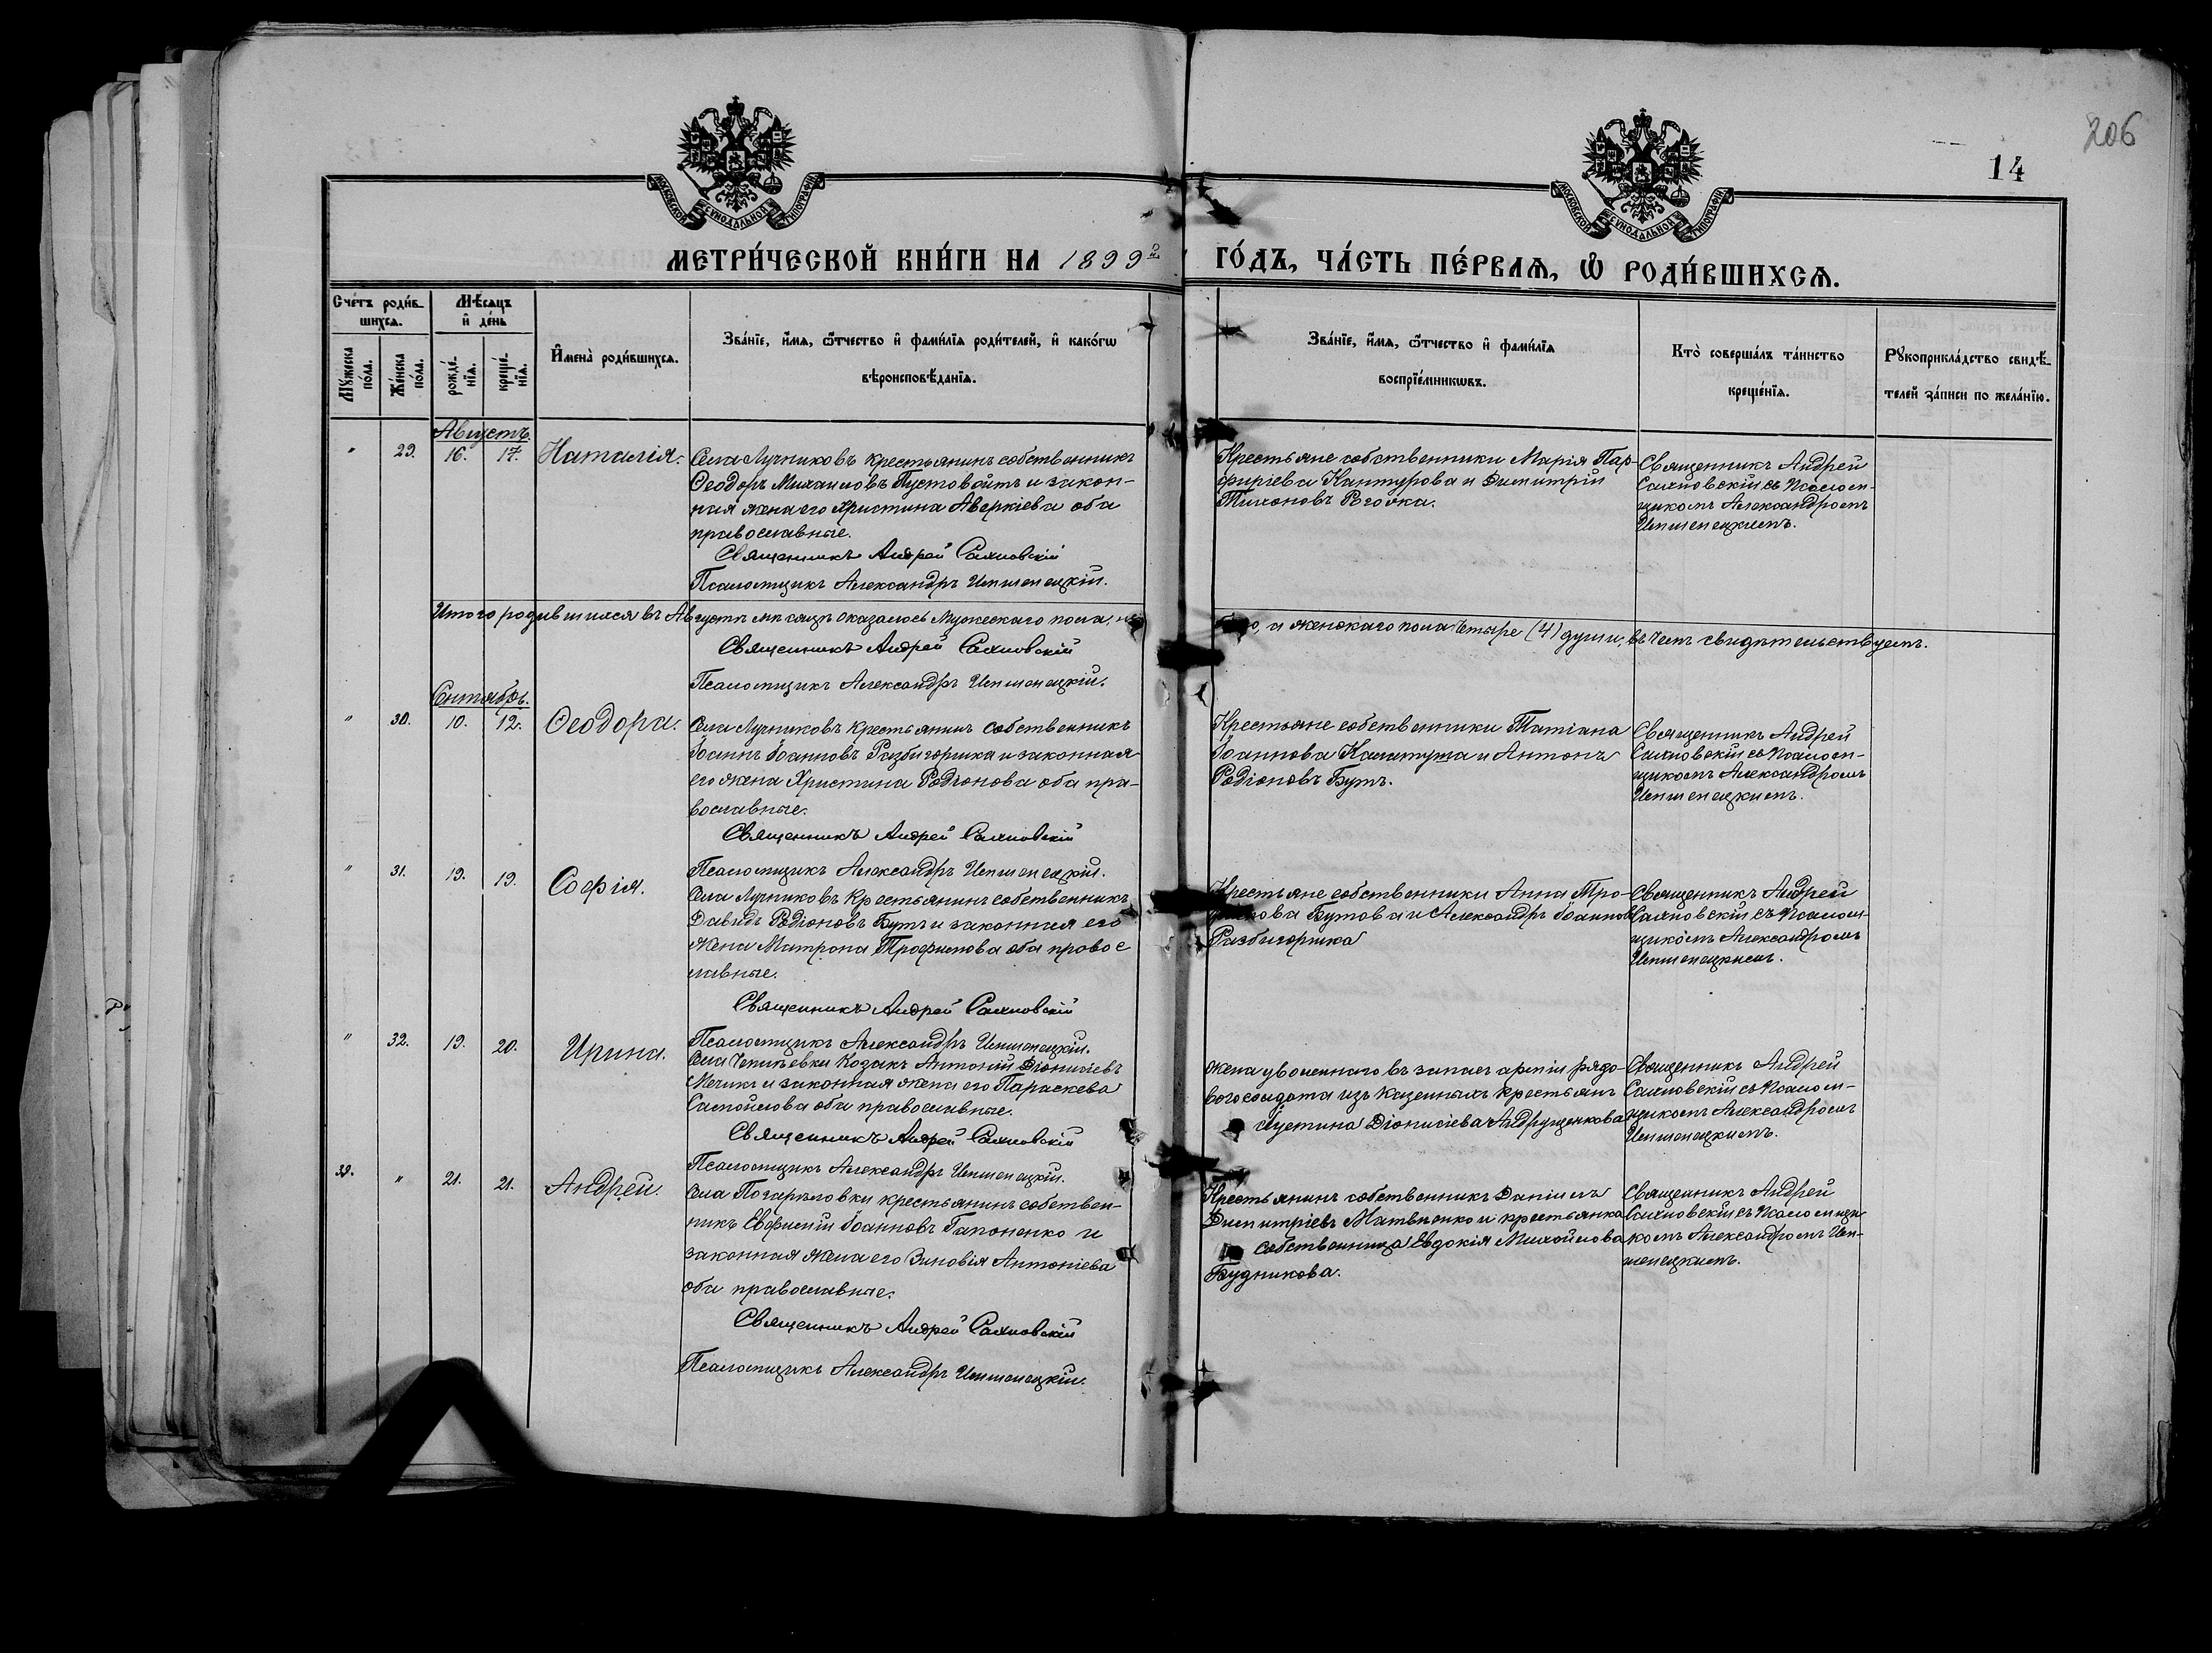 206
14
МОСКОВСКОЙ СѴНОДАЛЬНОЙ ТИПОГРАФІИ
МОСКОВСКОЙ СѴНОДАЛЬНОЙ ТИПОГРАФІИ
МЕТРИ́ЧЕСКОЙ КНИ́ГИ НА 1899й ГО́ДЪ, ЧА́СТЬ ПЕ́РВАЯ, Ѡ РОДИ́ВШИХСѦ.
Сче́тъ роди́в-
шихсѧ.
Мѣ́сѧцъ
и де́нь
Мꙋ́жеска
по́ла.
Же́нска
по́ла.
рожде́-
нїѧ.
креще́-
нїѧ.
Имена̀ роди́вшихсѧ.
Зва́нїе, и́мѧ, ѻ́тчество и фами́лїѧ роди́телей, и како́гѡ
вѣроисповѣ́данїѧ.
Зва́нїе, и́мѧ, ѻ́тчество и фами́лїѧ
воспрїе́мникѡвъ.
Кто̀ соверша́лъ та́инство
креще́нїѧ.
Рꙋкоприкла́дство свидѣ́-
телей за́писи по жела́нїю.
Августъ.
" 29. 16. 17. Наталія.
Села Лучниковъ крестьянинъ собственникъ
Ѳеодоръ Михаиловъ Пустовойтъ и закон-
ная жена его Христина Аверкіева оба
православные.
Священникъ Андрей Сахновскій
Псаломщикъ Александръ
Крестьяне собственники Марія Пар-
фиріева Кантурова и Димитрій
Тихоновъ
Священникъ Андрей
Сахновскій съ Псалом-
щикомъ Александромъ
Итого родившихся въ Августѣ мѣсяцѣ оказалось Мужескаго пола, и женскаго пола четыре (4) души, въ чемъ свидѣтельствуемъ.
Священникъ Андрей Сахновскій
Псаломщикъ Александръ
Сентябрь.
" 30. 10. 12. Ѳеодора.
Села Лучниковъ крестьянинъ собственникъ
Іоаннъ Іоанновъ Разбигорика и законная
его жена Христина Родіонова оба пра-
вославные.
Священникъ Андрей Сахновскій
Псаломщикъ Александръ
Крестьяне собственники Татіана
Іоаннова и Антонъ
Родіоновъ Бутъ.
Священникъ Андрей
Сахновскій съ Псалом-
щикомъ Александромъ
" 31. 19. 19. Софія.
Села Лучниковъ Крестьянинъ собственникъ
Давидъ Родіоновъ Бутъ и законная его
жена Матрона Трофимова оба правос
лавные.
Священникъ Андрей Сахновскій
Псаломщикъ Александръ
Крестьяне собственники Анна Тро-
Бутова и Александръ Іоанновъ
Разбигорика
Священникъ Андрей
Сахновскій съ Псалом-
щикомъ Александромъ
" 32. 19. 20. Ирина.
Села Чепилевки Козакъ Антоній Діонисіевъ
и законная жена его Параскева
Самойлова оба православные.
Священникъ Андрей Сахновскій
Псаломщикъ Александръ
Жена уволеннаго въ запасъ арміи рядо-
вого солдата изъ казенныхъ крестьянъ
Іустина Діонисіева Андрущенкова
Священникъ Андрей
Сахновскій съ Псалом-
щикомъ Александромъ
39. " 21. 21. Андрей.
Села Погариловки крестьянинъ собствен-
никъ Евфимій Іоанновъ Гапоненко и
законная жена его Зиновія Антоніева
оба православные.
Священникъ Андрей Сахновскій
Псаломщикъ Александръ
Крестьянинъ собственникъ Даніилъ
Димитріевъ Матвіенко и крестьянка
собственница Евдокія Михайлова
Будникова.
Священникъ Андрей
Сахновскій съ Псаломщи-
комъ Александромъ